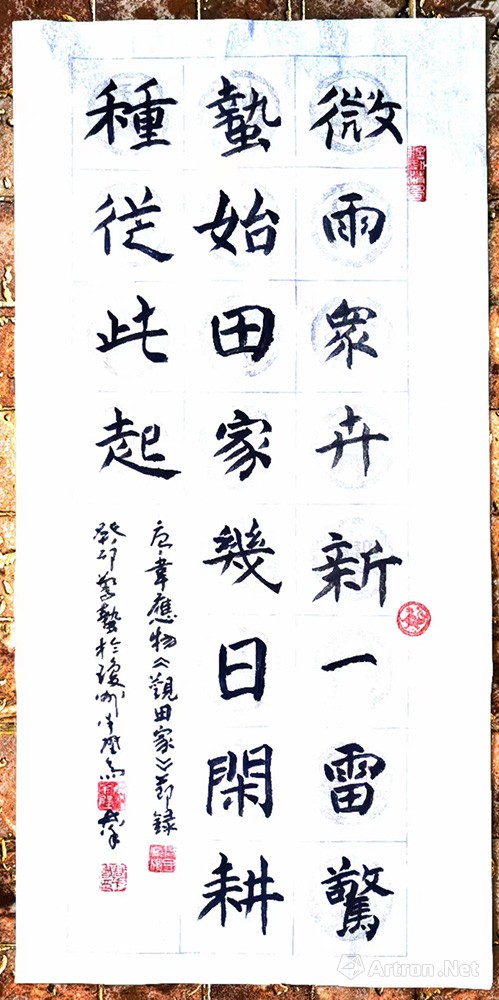 微雨眾卉新一雷驚
蟄始田家幾日閑耕
種從此起
唐·韋應物《觀田家》節錄
癸卯驚蟄於瓊州
Artron.Net